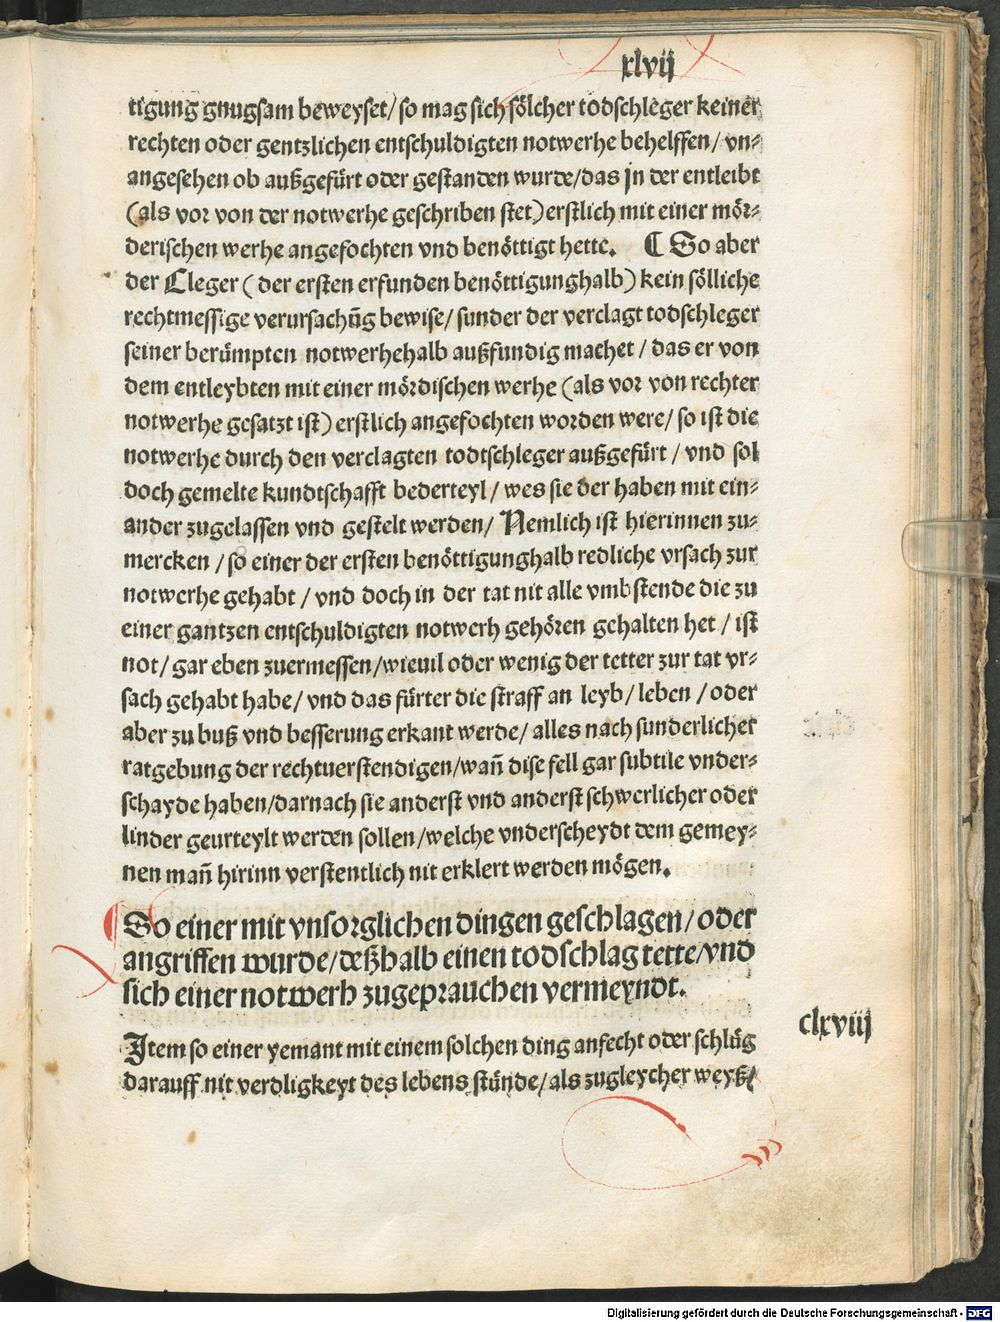 xlvij
tigung gnugsam beweyset/ so mag sich sölcher todschleger keiner
rechten oder gentzlichen entschuldigten notwerhe behelffen/ vn⸗
angesehen ob außgefürt oder gestanden wurde/das jn der entleibt
(als vor von der notwerhe geschriben stet)erstlich mit einer mör⸗
derischen werhe angefochten vnd benöttigt hette. ¶ So aber
der Cleger ( der ersten erfunden benöttigunghalb) kein sölliche
rechtmessige verursachūg bewise/ sunder der verclagt todschleger
seiner berümpten notwerhehalb außfundig machet / das er von
dem entleybten mit einer mördischen werhe (als vor von rechter
notwerhe gesatzt ist) erstlich angefochten worden were/ so ist die
notwerhe durch den verclagten todtschleger außgefürt / vnd sol
doch gemelte kundtschafft bederteyl / wes sie der haben mit ein⸗
ander zugelassen vnd gestelt werden/ Nemlich ist hierinnen zu⸗
mercken / so einer der ersten benöttigunghalb redliche vrsach zur
notwerhe gehabt / vnd doch in der tat nit alle vmbstende die zu
einer gantzen entschuldigten notwerh gehören gehalten het / ist
not/ gar eben zuermessen/wieuil oder wenig der tetter zur tat vr⸗
sach gehabt habe/ vnd das fürter die straff an leyb/ leben / oder
aber zu buß vnd besserung erkant werde/ alles nach sunderlicher
ratgebung der rechtuerstendigen/wañ dise fell gar subtile vnder⸗
schayde haben/darnach sie anderst vnd anderst schwerlicher oder
linder geurteylt werden sollen/welche vnderscheydt dem gemey⸗
nen mañ hirinn verstentlich nit erklert werden mögen.
So einer mit vnsorglichen dingen geschlagen/ oder
angriffen wurde/deßhalb einen todschlag tette/vnd
sich einer notwerh zugeprauchen vermeyndt.
clxviij
Jtem so einer yemant mit einem solchen ding anfecht oder schlüg
darauff nit verdligkeyt des lebens stünde/als zugleycher weyß/
Digitalisierung gefördert durch die Deutsche Forschungsgemeinschaft - DFG